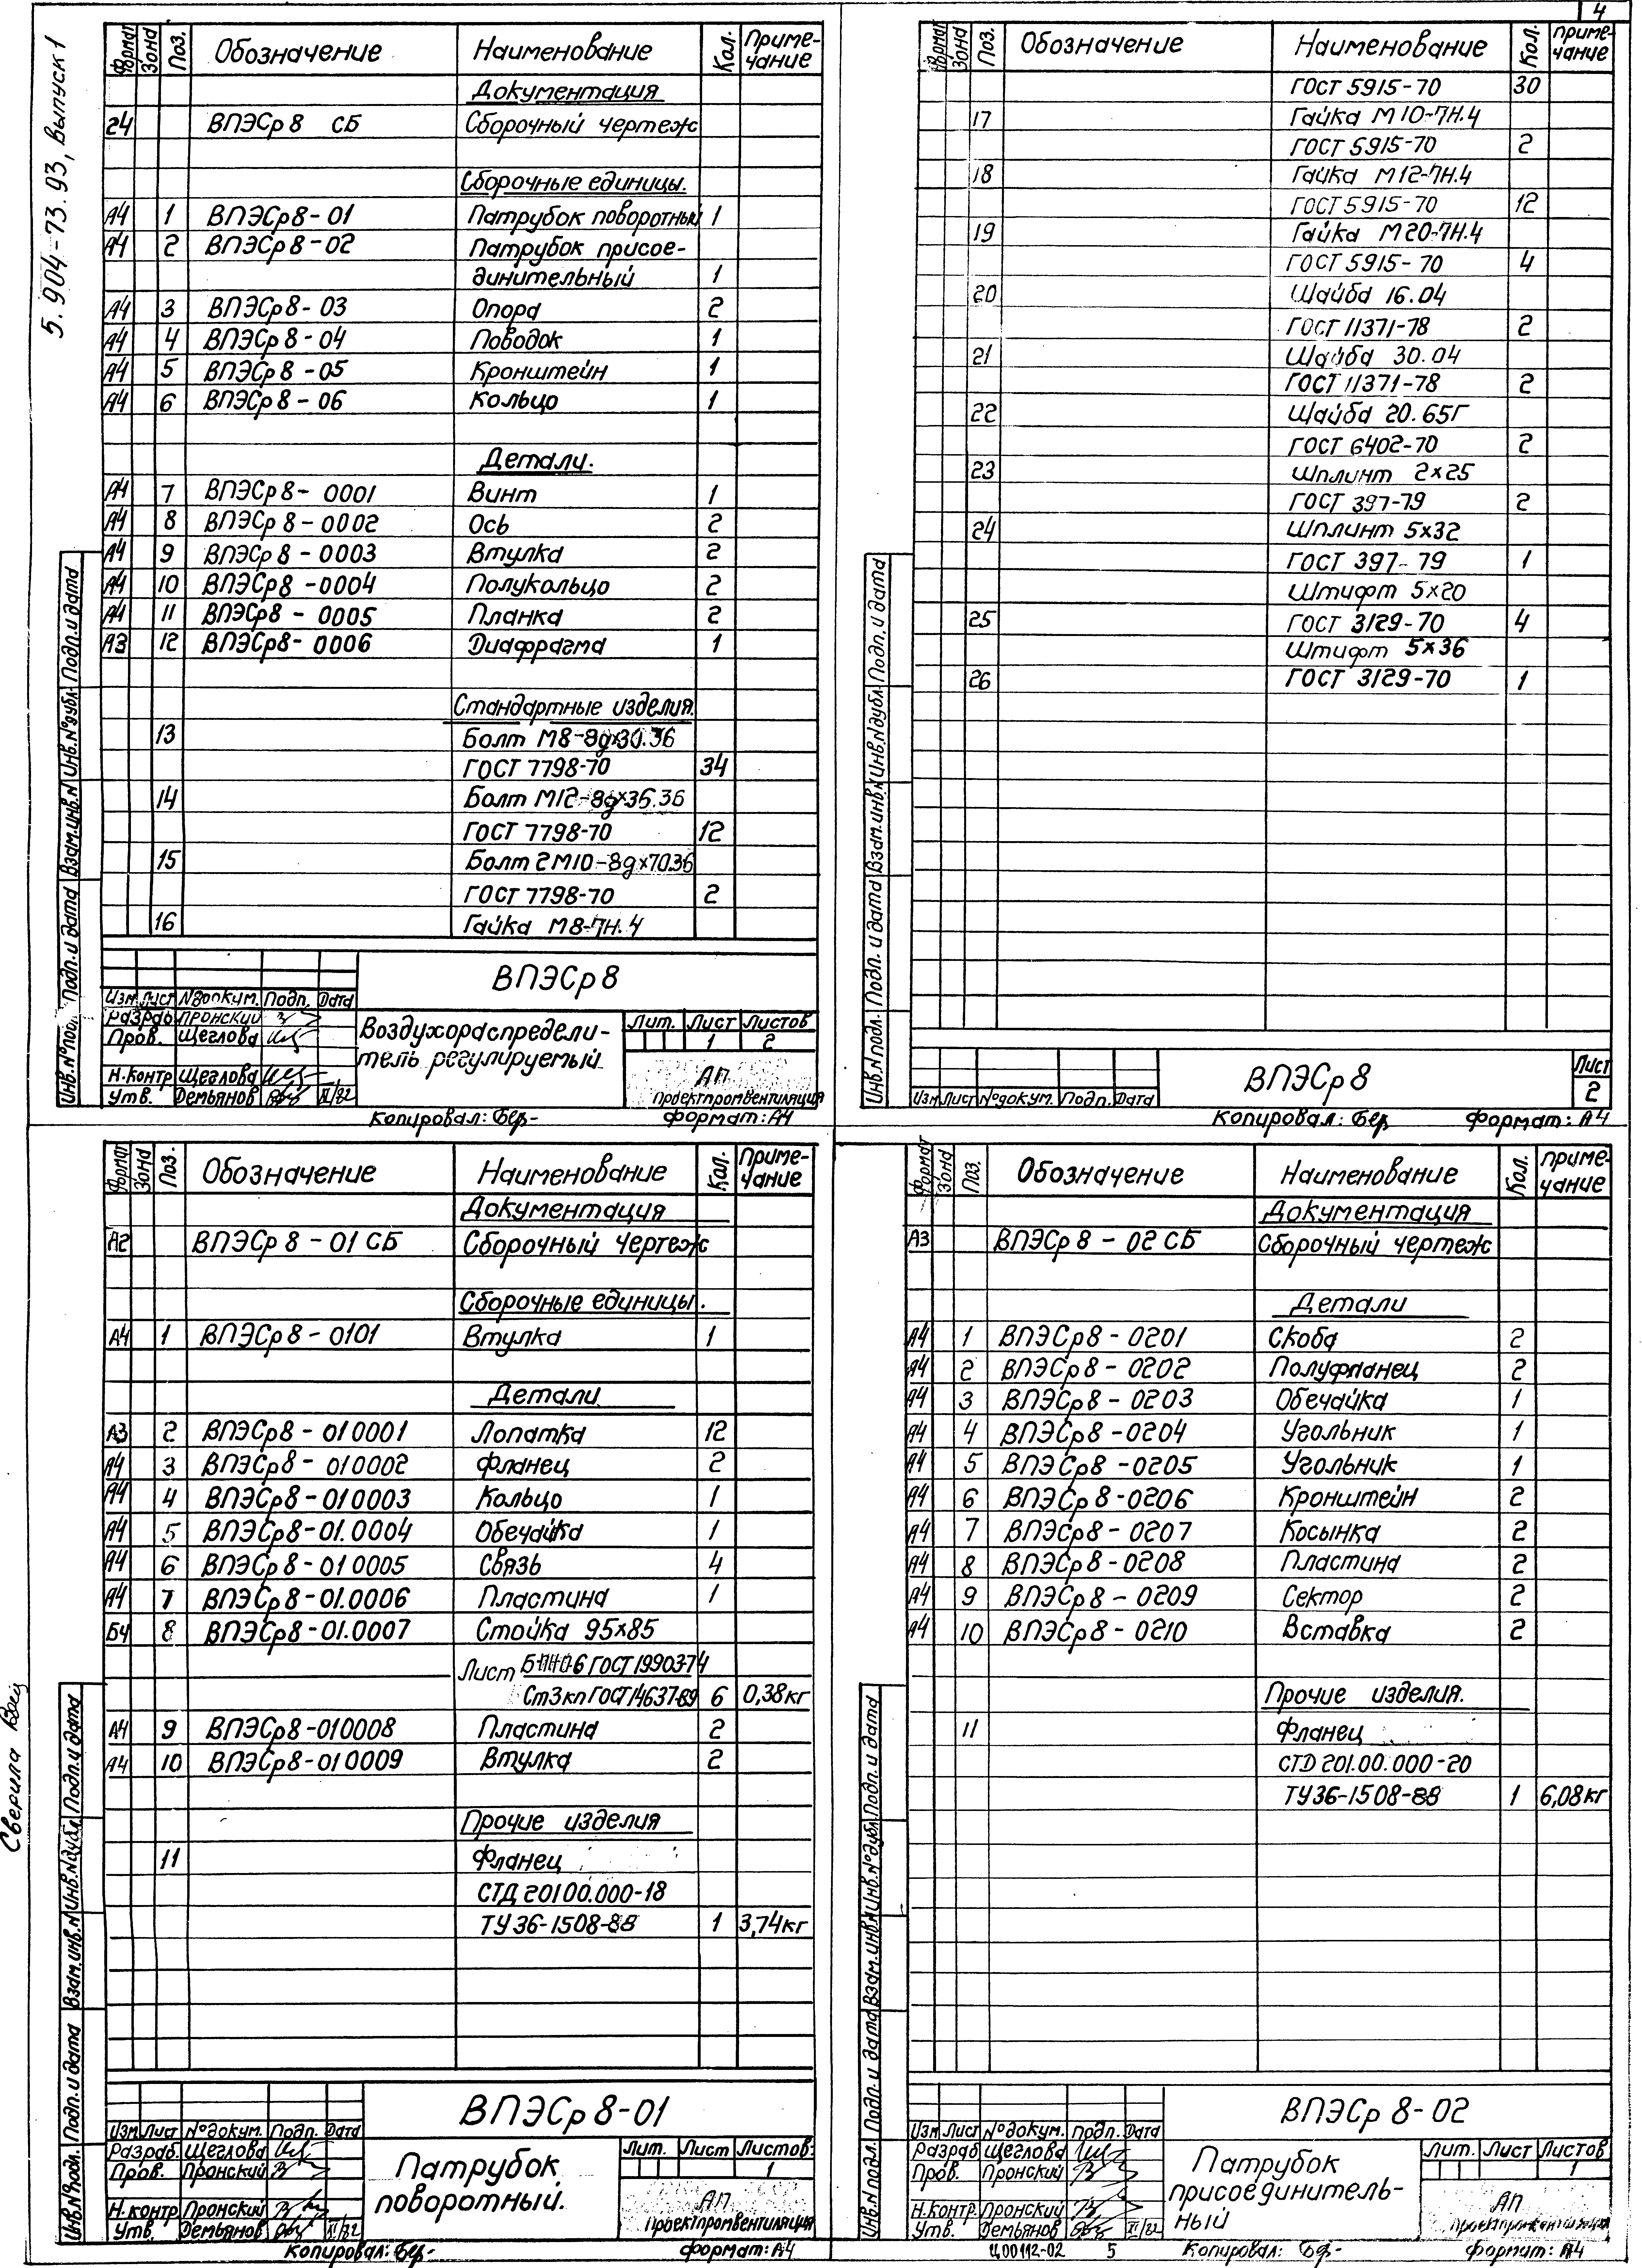 4
5.904-73.93, выпуск 1
Формат Зона Поз. Обозначение Наименование Кол. Приме-чание
Документация
24 ВПЭСр8 СБ Сборочный чертеж
Сборочные единицы.
А4 1 ВПЭСр8-01 Патрубок поворотный 1
А4 2 ВПЭСр8-02 Патрубок присое-
динительный 1
А4 3 ВПЭСр8-03 Опора 2
А4 4 ВПЭСр8-04 Поводок 1
А4 5 ВПЭСр8-05 Кронштейн 1
А4 6 ВПЭСр8-06 Кольцо 1
Детали.
А4 7 ВПЭСр8-0001 Винт 1
А4 8 ВПЭСр8-0002 Ось 2
А4 9 ВПЭСр8-0003 Втулка 2
А4 10 ВПЭСр8-0004 Полукольцо 2
А4 11 ВПЭСр8-0005 Планка 2
А3 12 ВПЭСр8-0006 Диафрагма 1
Стандартные изделия.
13 Болт М8-8gx30.36
ГОСТ 7798-70 34
14 Болт М12-8gx35.36
ГОСТ 7798-70 12
15 Болт 2М10-8gx70.36
ГОСТ 7798-70 2
16 Гайка М8-7Н.4
Инв.№подл. Подп. и дата Взам.инв.№ Инв.№дубл. Подп. и дата
ВПЭСр8
Изм Лист №докум. Подп. Дата
Разраб. Пронский
Пров. Щеглова
Н.контр Щеглова
Утв. Демьянов
Воздухораспредели-
тель регулируемый.
Лит. Лист Листов
1 2
АП
Проектпромвентиляция
Копировал: Бер- Формат: А4
Формат Зона Поз. Обозначение Наименование Кол. Приме-чание
ГОСТ 5915-70 30
17 Гайка М10-7Н.4
ГОСТ 5915-70 2
18 Гайка М12-7Н.4
ГОСТ 5915-70 12
19 Гайка М20-7Н.4
ГОСТ 5915-70 4
20 Шайба 16.04
ГОСТ 11371-78 2
21 Шайба 30.04
ГОСТ 11371-78 2
22 Шайба 20.65Г
ГОСТ 6402-70 2
23 Шплинт 2x25
ГОСТ 397-79 2
24 Шплинт 5x32
ГОСТ 397-79 1
Штифт 5x20
25 ГОСТ 3129-70 4
Штифт 5x36
26 ГОСТ 3129-70 1
Инв.№подл. Подп. и дата Взам.инв.№ Инв.№дубл. Подп. и дата
Изм Лист №докум. Подп. Дата
ВПЭСр8
Лист
2
Копировал: Бер Формат: А4
Формат Зона Поз. Обозначение Наименование Кол. Приме-чание
Документация
А2 ВПЭСр8-01 СБ Сборочный чертеж
Сборочные единицы.
А4 1 ВПЭСр8-0101 Втулка 1
Детали
А3 2 ВПЭСр8-010001 Лопатка 12
А4 3 ВПЭСр8-010002 Фланец 2
А4 4 ВПЭСр8-010003 Кольцо 1
А4 5 ВПЭСр8-01.0004 Обечайка 1
А4 6 ВПЭСр8-010005 Связь 4
А4 7 ВПЭСр8-01.0006 Пластина 1
Б4 8 ВПЭСр8-01.0007 Стойка 95x85
Лист Б-ПН-0-6 ГОСТ 19903-74
Ст3кп ГОСТ 14637-89 6 0,38кг
А4 9 ВПЭСр8-010008 Пластина 2
А4 10 ВПЭСр8-010009 Втулка 2
Прочие изделия
11 Фланец
СТД 20100.000-18
ТУ36-1508-88 1 3,74кг
Сверила
Инв.№подл. Подп. и дата Взам.инв.№ Инв.№дубл. Подп. и дата
ВПЭСр8-01
Изм Лист №докум. Подп. Дата
Разраб. Щеглова
Пров. Пронский
Н.контр Пронский
Утв. Демьянов
Патрубок
поворотный.
Лит. Лист Листов
1
АП
Проектпромвентиляция
Копировал: Бер- Формат: А4
Формат Зона Поз. Обозначение Наименование Кол. Приме-чание
Документация
А3 ВПЭСр8-02 СБ Сборочный чертеж
Детали
А4 1 ВПЭСр8-0201 Скоба 2
А4 2 ВПЭСр8-0202 Полуфланец 2
А4 3 ВПЭСр8-0203 Обечайка 1
А4 4 ВПЭСр8-0204 Угольник 1
А4 5 ВПЭСр8-0205 Угольник 1
А4 6 ВПЭСр8-0206 Кронштейн 2
А4 7 ВПЭСр8-0207 Косынка 2
А4 8 ВПЭСр8-0208 Пластина 2
А4 9 ВПЭСр8-0209 Сектор 2
А4 10 ВПЭСр8-0210 Вставка 2
Прочие изделия.
11 Фланец
СТД 201.00.000-20
ТУ36-1508-88 1 6,08кг
Инв.№подл. Подп. и дата Взам.инв.№ Инв.№дубл. Подп. и дата
ВПЭСр8-02
Изм Лист №докум. Подп. Дата
Разраб Щеглова
Пров. Пронский
Н.контр. Пронский
Утв. Демьянов
Патрубок
присоединитель-
ный
Лит. Лист Листов
1
АП
Проектпромвентиляция
Ц00112-02 5 Копировал: Бер- Формат: А4